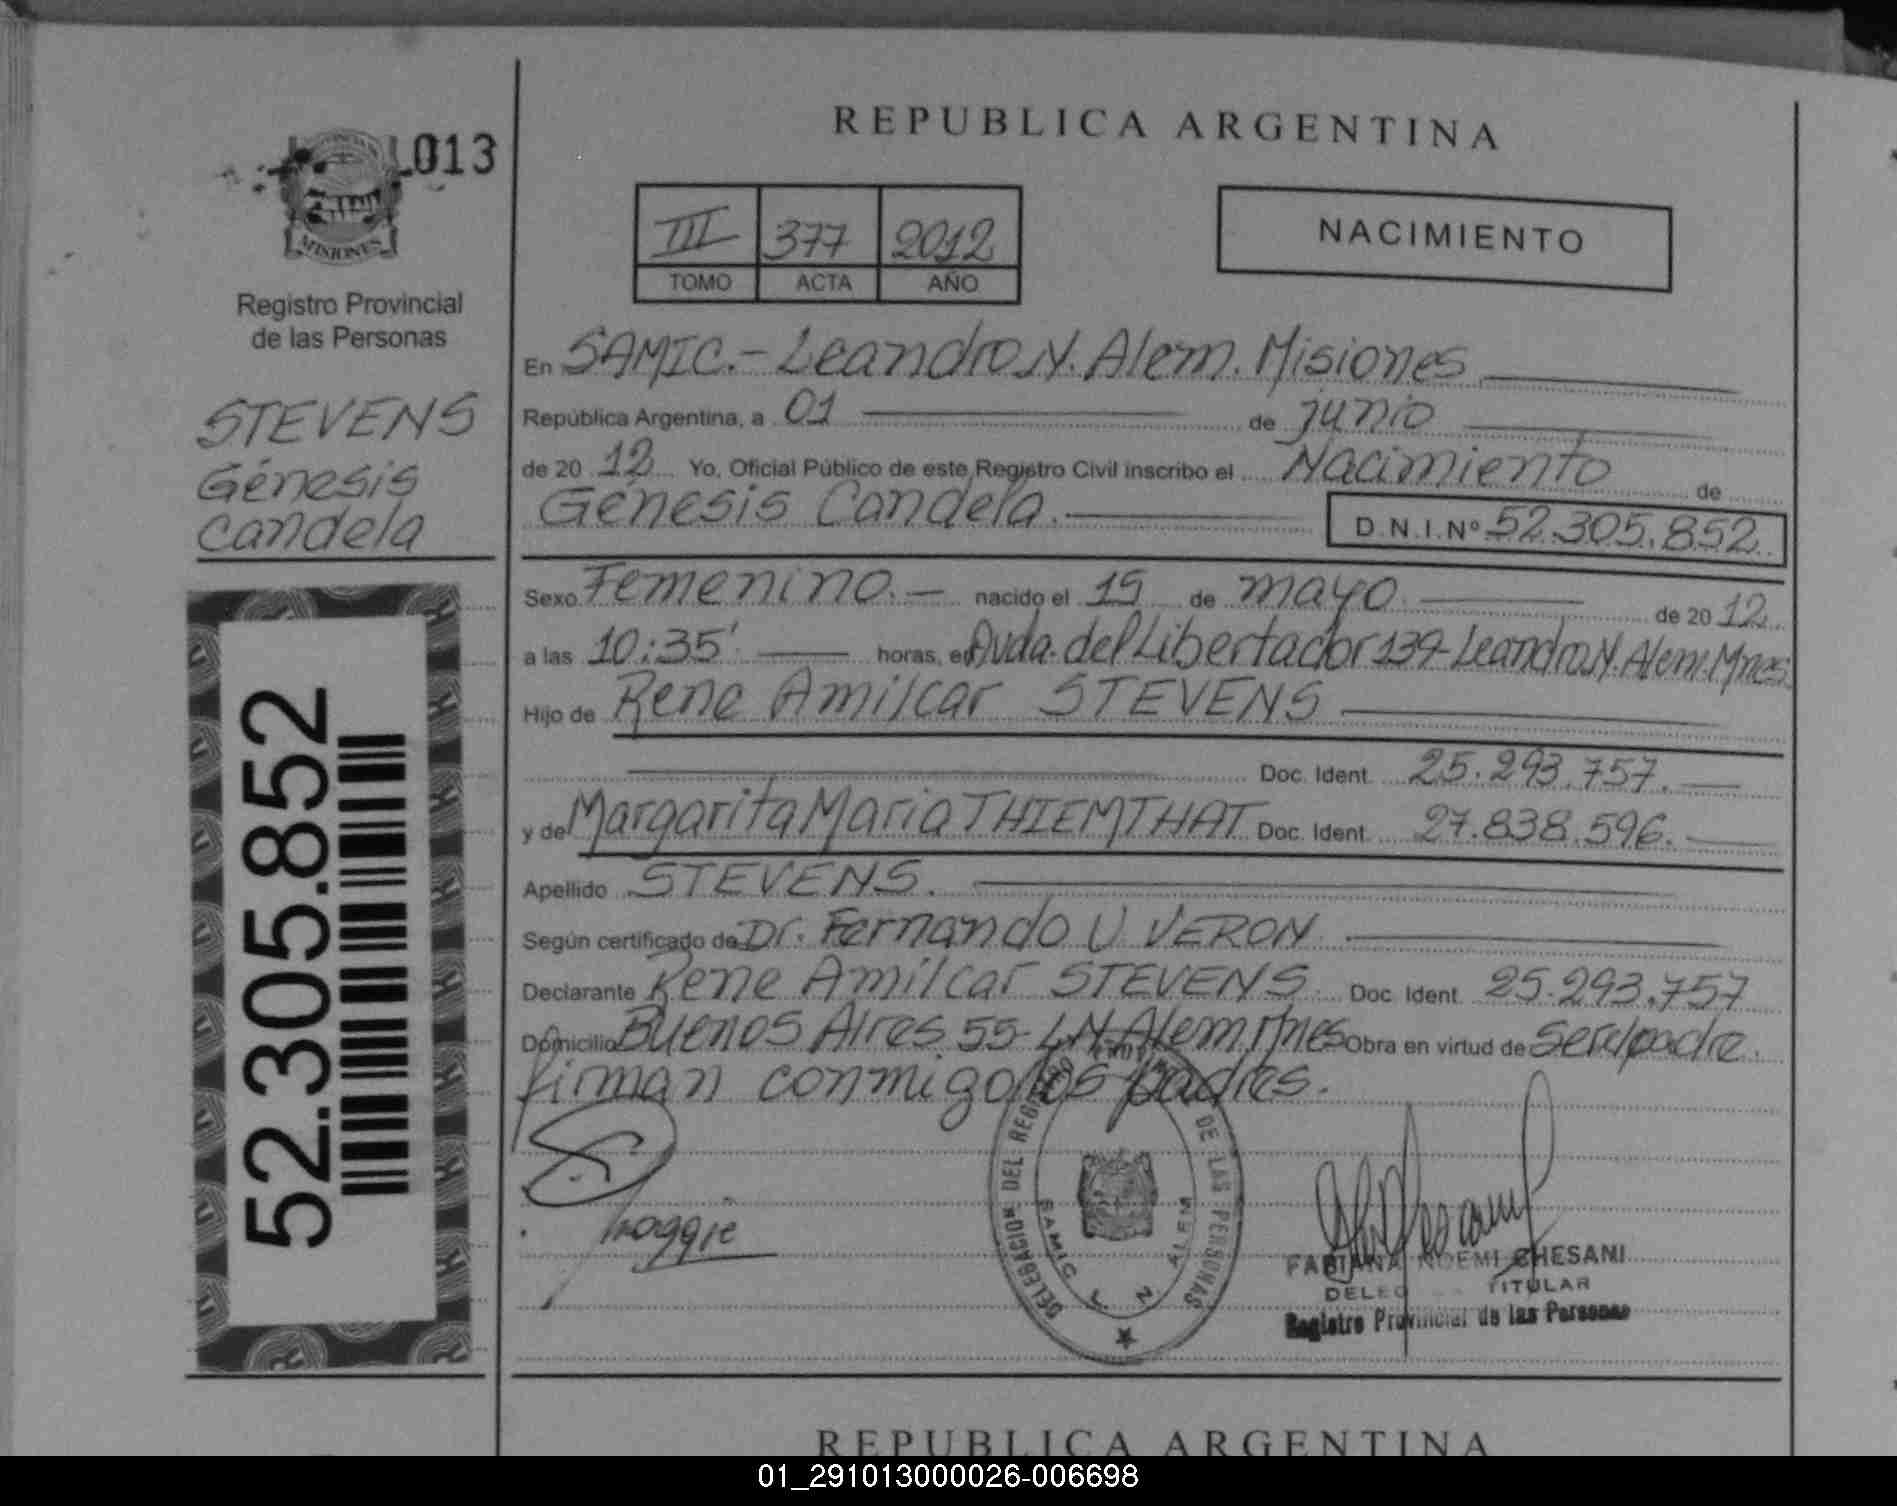 013
MISIONES
Registro Provincial
de las Personas
STEVENS
Génesis
Candela
52.305.852
REPUBLICA ARGENTINA
III 377 2012
TOMO ACTA AÑO
NACIMIENTO
En SAMIC.- Leandro N. Alem. Misiones
República Argentina, a 01 de junio
de 2012 Yo, Oficial Público de este Registro Civil inscribo el Nacimiento de
Génesis Candela. D.N.I.Nº 52.305.852
Sexo Femenino.- nacido el 15 de mayo de 2012
a las 10:35' horas, en Avda. del Libertador 139-Leandro N. Alem. Mnes
Hijo de Rene Amilcar STEVENS
Doc. Ident. 25.293.757.
y de Margarita Maria THIEMTHAT Doc. Ident. 27.838.596.
Apellido STEVENS.
Según certificado de Dr. Fernando U VERON
Declarante Rene Amilcar STEVENS Doc. Ident. 25.293.757
Domicilio Buenos Aires 55- L.N. Alem. Mnes Obra en virtud de ser el padre.
firman conmigo los padres.
DELEGACION DEL REGISTRO DE LAS PERSONAS
SAMIC L N ALEM
FABIANA NOEMI CHESANI
TITULAR
Registro Provincial de las Personas
REPUBLICA ARGENTINA
01_291013000026-006698